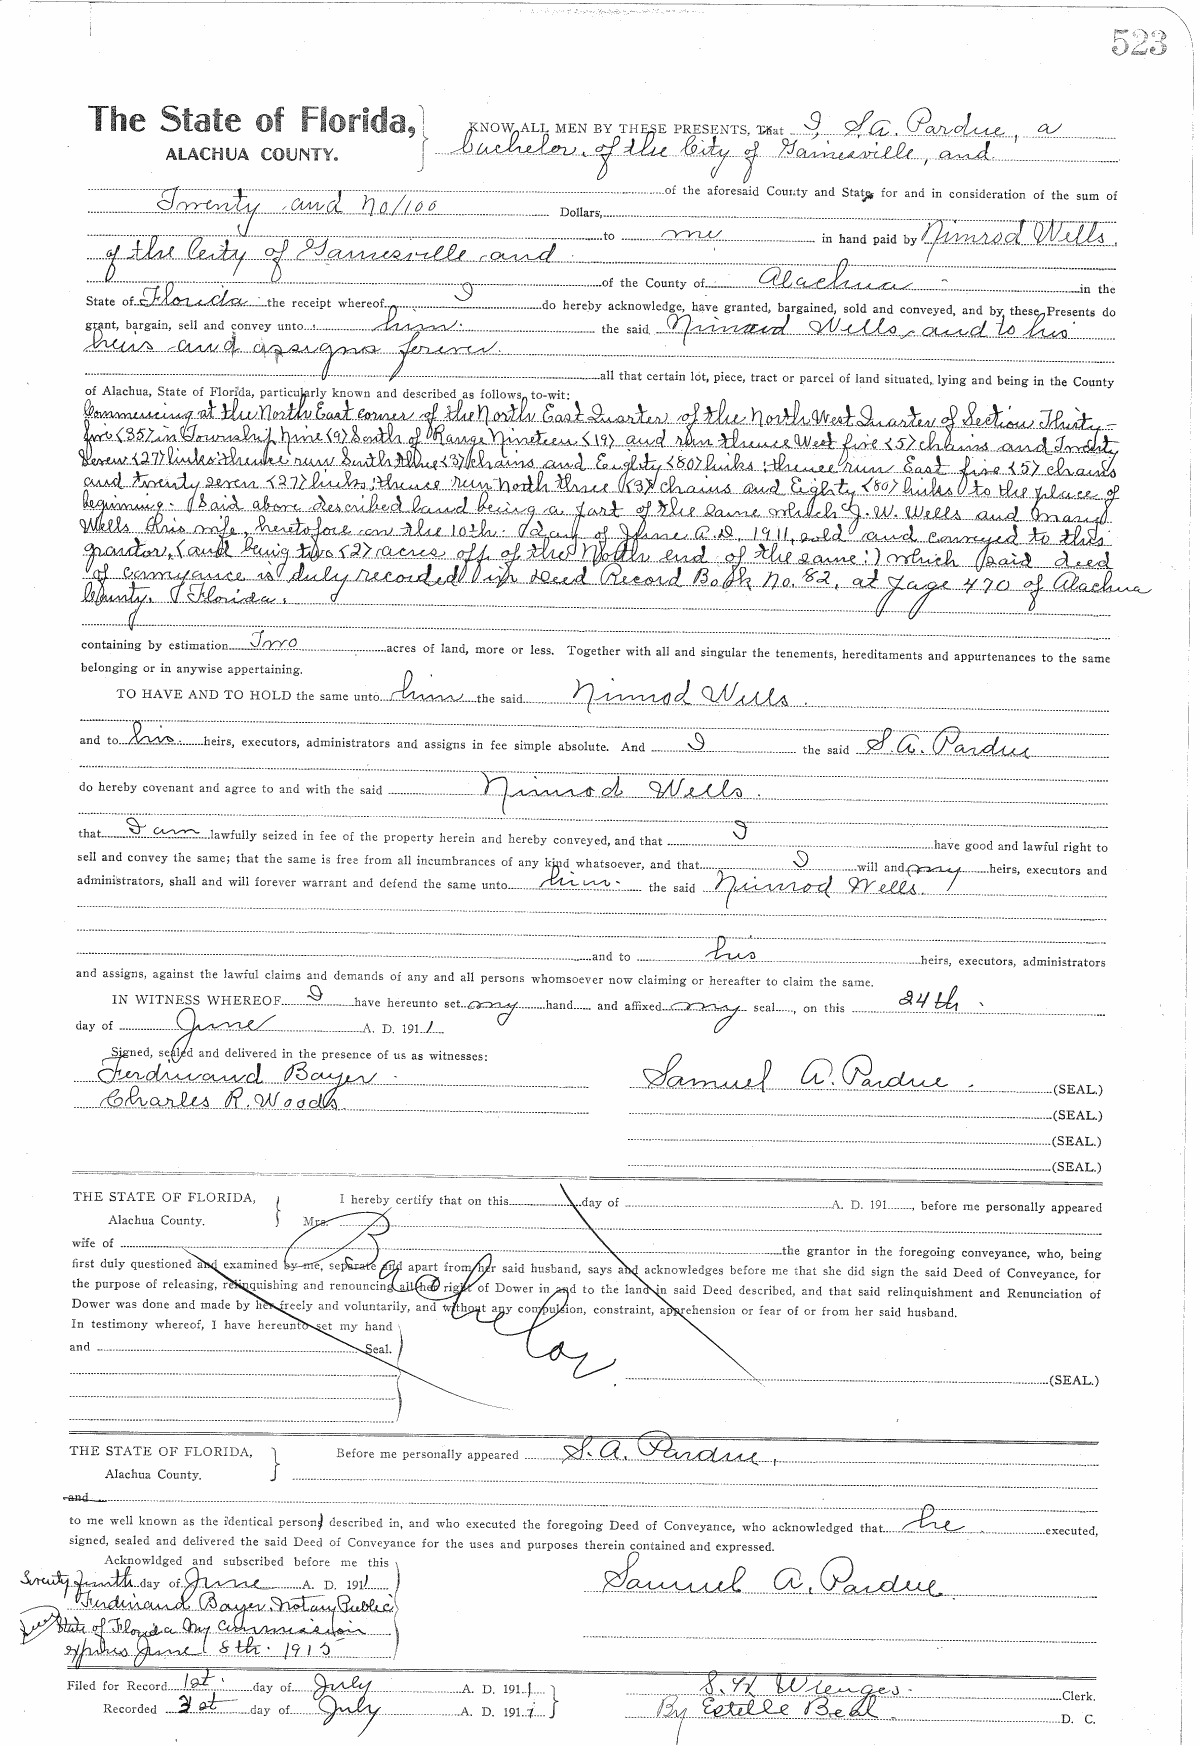 523
The State of Florida,
ALACHUA COUNTY.
KNOW ALL MEN BY THESE PRESENTS, That I, S.A. Pardue, a
bachelor, of the City of Gainesville, and
of the aforesaid County and State, for and in consideration of the sum of
Twenty and no/100 Dollars,
to me in hand paid by Nimrod Wells,
of the City of Gainesville and
of the County of Alachua in the
State of Florida the receipt whereof I do hereby acknowledge, have granted, bargained, sold and conveyed, and by these Presents do
grant, bargain, sell and convey unto him the said Nimrod Wells, and to his
heirs and assigns forever.
all that certain lot, piece, tract or parcel of land situated, lying and being in the County
of Alachua, State of Florida, particularly known and described as follows, to-wit:
Commencing at the North East corner of the North East Quarter of the North West Quarter of Section Thirty-
five <35> in Township Nine <9> South of Range Nineteen <19> and run thence West five <5> chains and Twenty
Seven <27> links; thence run South three <3> chains and Eighty <80> links; thence run East five <5> chains
and twenty seven <27> links; thence run North three <3> chains and Eighty <80> links to the place of
beginning. (Said above described land being a part of the same which J. W. Wells and Mary
Wells, his wife, heretofore on the 10th. Day of June A.D. 1911, sold and conveyed to this
grantor, (and being two <2> acres off of the North end of the same:) which said deed
of conveyance is duly recorded in Deed Record Book No. 82, at page 470 of Alachua
County, Florida.
containing by estimation Two acres of land, more or less. Together with all and singular the tenements, hereditaments and appurtenances to the same
belonging or in anywise appertaining.
TO HAVE AND TO HOLD the same unto him the said Nimrod Wells.
and to his heirs, executors, administrators and assigns in fee simple absolute. And I the said S.A. Pardue
do hereby covenant and agree to and with the said Nimrod Wells.
that I am lawfully seized in fee of the property herein and hereby conveyed, and that I have good and lawful right to
sell and convey the same; that the same is free from all incumbrances of any kind whatsoever, and that I will and my heirs, executors and
administrators, shall and will forever warrant and defend the same unto him the said Nimrod Wells.
and to his heirs, executors, administrators
and assigns, against the lawful claims and demands of any and all persons whomsoever now claiming or hereafter to claim the same.
IN WITNESS WHEREOF I have hereunto set my hand and affixed my seal, on this 24th.
day of June A. D. 1911.
Signed, sealed and delivered in the presence of us as witnesses:
Ferdinand Bayer.
Charles R. Woods
Samuel A. Pardue. (SEAL.)
(SEAL.)
(SEAL.)
(SEAL.)
THE STATE OF FLORIDA,
Alachua County.
I hereby certify that on this day of A. D. 191, before me personally appeared
Mrs.
wife of the grantor in the foregoing conveyance, who, being
first duly questioned and examined by me, separate and apart from her said husband, says and acknowledges before me that she did sign the said Deed of Conveyance, for
the purpose of releasing, relinquishing and renouncing all her right of Dower in and to the land in said Deed described, and that said relinquishment and Renunciation of
Dower was done and made by her freely and voluntarily, and without any compulsion, constraint, apprehension or fear of or from her said husband.
Bachelor
In testimony whereof, I have hereunto set my hand
and Seal.
(SEAL.)
THE STATE OF FLORIDA,
Alachua County.
Before me personally appeared S.A. Pardue,
and
to me well known as the identical person described in, and who executed the foregoing Deed of Conveyance, who acknowledged that he executed,
signed, sealed and delivered the said Deed of Conveyance for the uses and purposes therein contained and expressed.
Acknowldged and subscribed before me this
Twenty fourth day of June A. D. 1911
Ferdinand Bayer, Notary Public
State of Florida My Commission
expires June 8th. 1915
Samuel A. Pardue.
Filed for Record 1st. day of July A. D. 1911
Recorded 31st day of July A. D. 191
S. H. Wienges. Clerk.
By Estelle Beal. D. C.